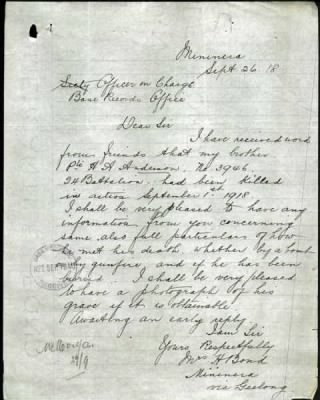 Mininera
Sept 26. 18
Secty Officer in Charge
Base Records Office
Dear Sir
I have received word
from friends that my brother
Pte H. A. Anderson, No. 3946
24 Battalion, had been killed
in action September 1st 1918
I shall be very pleased to have any
information from you concerning
same, also full particulars of how
he met his death whether by a bomb
or by gunfire, and if he has been
buried. I shall be very pleased
to have a photograph of his
grave if it is obtainable
Awaiting an early reply
I am Sir
Yours Respectfully
Mrs H Bond
Mininera
via Geelong